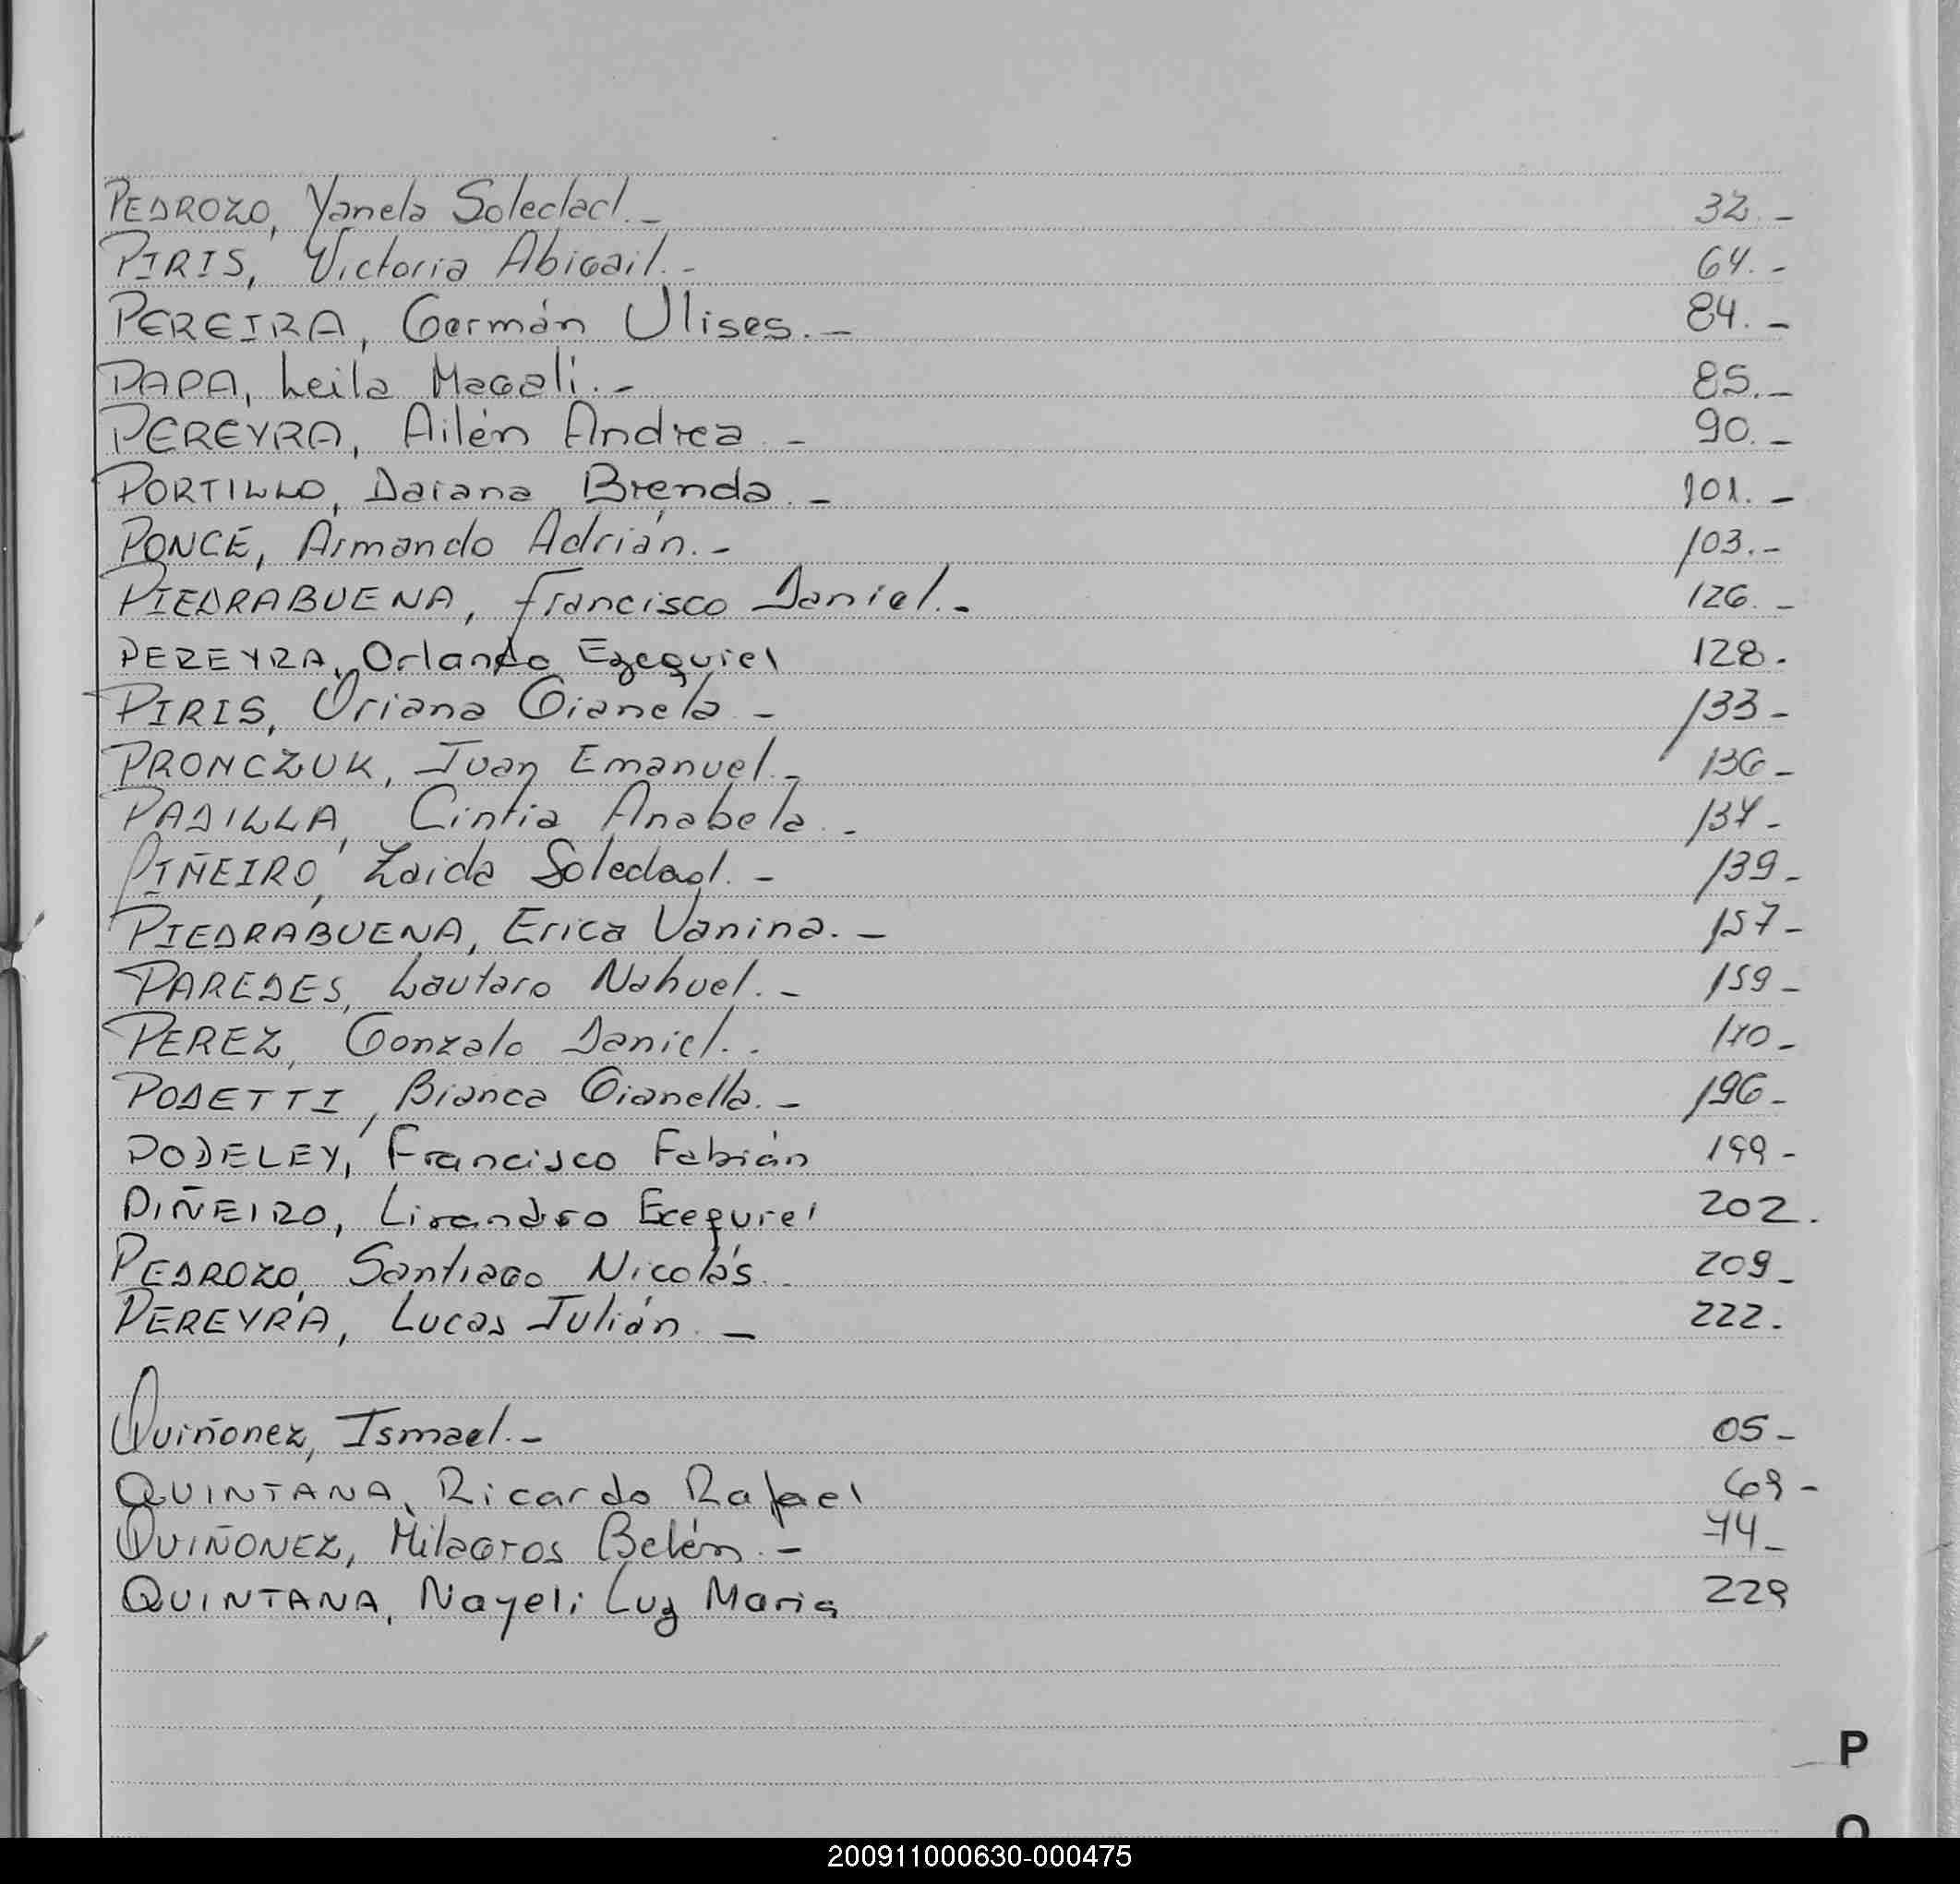 PEDROZO, Yanela Soledad.- 32.-
PIRIS, Victoria Abigail.- 64.-
PEREIRA, Germán Ulises.- 84.-
PAPA, Leila Magali.- 85.-
PEREYRA, Ailén Andrea.- 90.-
PORTILLO, Daiana Brenda.- 101.-
PONCE, Armando Adrián.- 103.-
PIEDRABUENA, Francisco Daniel.- 126.-
PEREYRA, Orlando Ezequiel 128.
PIRIS, Oriana Gianela.- 133-
PRONCZUK, Juan Emanuel.- 136-
PADILLA, Cintia Anabela.- 137-
PIÑEIRO, Zaida Soledad.- 139-
PIEDRABUENA, Erica Vanina.- 157-
PAREDES, Lautaro Nahuel.- 159-
PEREZ, Gonzalo Daniel.. 170-
PODETTI, Bianca Gianella.- 196-
PODELEY, Francisco Fabián 199-
PIÑEIRO, Lisandro Ecequiel 202.
PEDROZO, Santiago Nicolás.. 209-
PEREYRA, Lucas Julián.- 222.
Quiñonez, Ismael.- 05-
QUINTANA, Ricardo Rafael 69-
QUIÑONEZ, Milagros Belén.- 74-
QUINTANA, Nayeli Luz Maria 229
P
Q
200911000630-000475